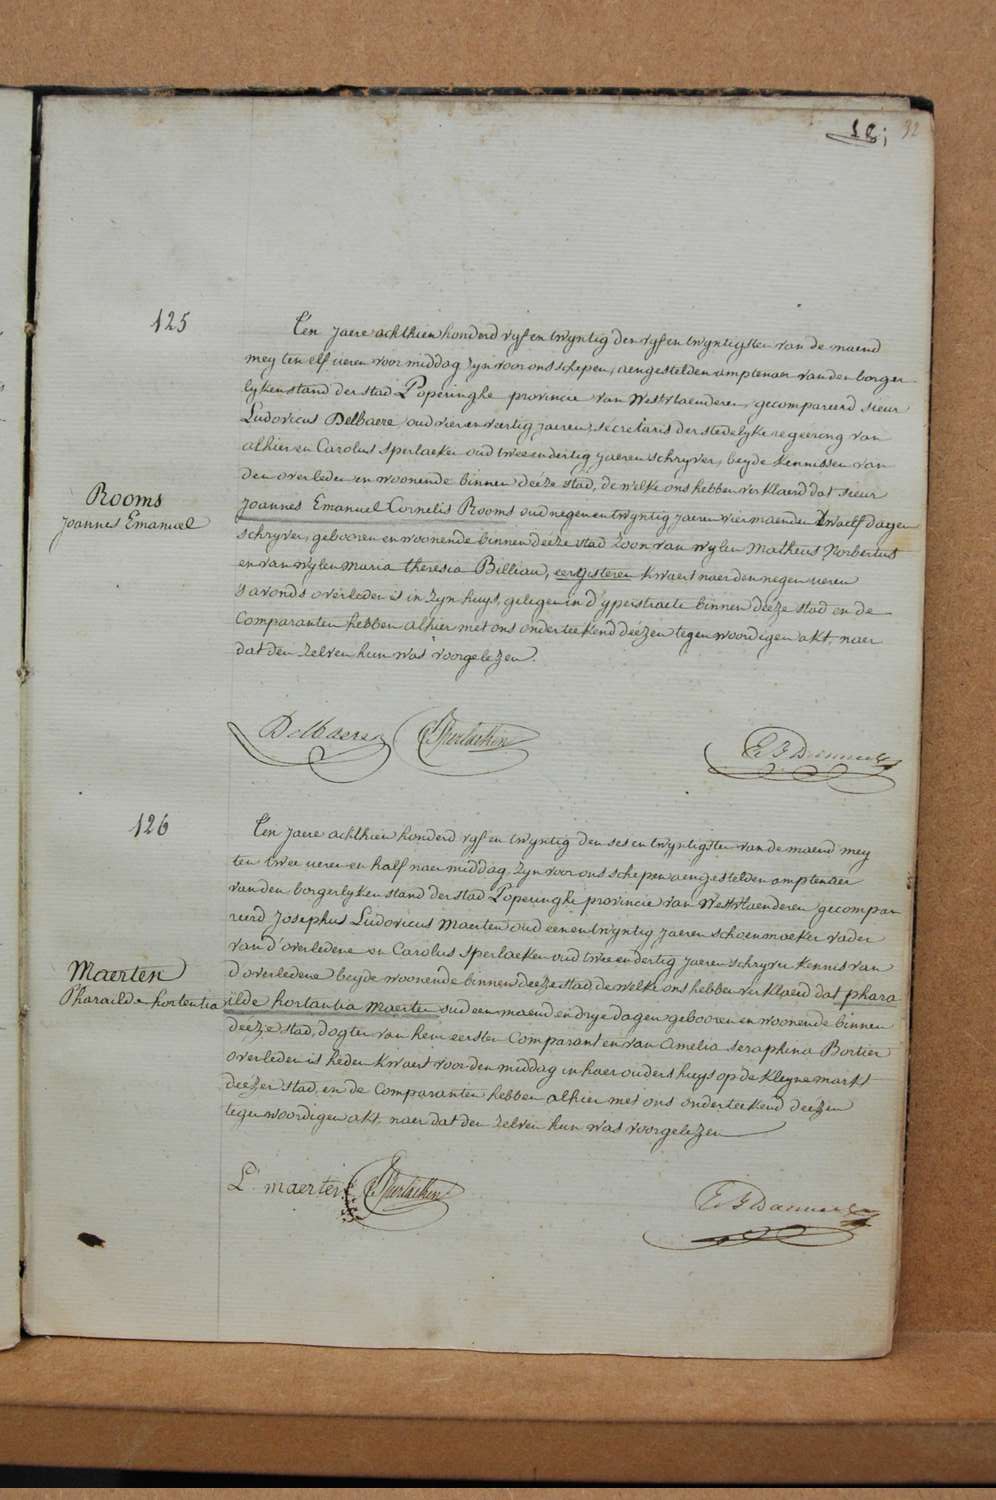 32
125
Ten jaere achthien honderd vyf en twyntig den vyf en twyntigsten van de maend
mey ten elf ueren voor middag zyn voor ons schepen, aengestelden amptenaer van den borger
lyken stand der stad Poperinghe provincie van Westvlaenderen, gecompareerd sieur
Ludovicus Delbaere, oud vier en veertig jaeren, secretaris der stedelyke regeering van
alhier en Carolus Sperlaeken oud twee en dertig jaeren schryver, beyde kennissen van
den overleden en woonende binnen deéze stad, de welke ons hebben verklaerd dat sieur
Rooms
Joannes Emanuel
Joannes Emanuel Cornelis Rooms oud negen en twyntig jaeren vier maenden twaelf dagen
schryver, gebooren en woonende binnen deeze stad zoon van wylen Matheus Norbertus
en van wylen Maria theresia Billiau, eergisteren kwaert naer den negen ueren
s'avonds overleden is in zyn huys, gelegen in d'yperstraete binnen deéze stad en de
Comparanten hebben alhier met ons onderteekend deézen tegenwoordigen akt, naer
dat den zelven hun was voorgelezen.
Delbaere C. Sperlaeken
126
Ten jaere achthien honderd vyf en twyntig den ses en twyntigsten van de maend mey
ten twee ueren en half naer middag, zyn voor ons schepen aengestelden amptenaer
van den borgerlyken stand der stad Poperinghe provincie van Westvlaenderen gecompa
reerd Josephus Ludovicus Maerten oud een en twyntig jaeren schoenmaeker vader
van d'overledene en Carolus Sperlaeken oud twee en dertig jaeren schryver kennis van
Maerten
Pharailde hortentia
d'overledene beyde woonende binnen deeze stad de welke ons hebben verklaerd dat phara
ilde hortantia Maerten oud een maend en drye dagen gebooren en woonende binnen
deéze stad, dogter van hem eersten Comparant en van Amelia Seraphina Bortier
overleden is heden kwaert voor den middag in haer ouders huys op de kleyne markt
deézer stad, en de Comparanten hebben alhier met ons onderteekend deézen
tegenwoordigen akt, naer dat den zelven hun was voorgelezen
L. maerten C. Sperlaeken